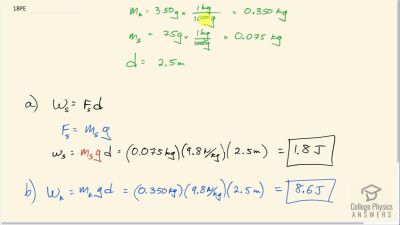 18PE
m_k = 350g × 1kg/1000g = 0.350 kg
m_s = 75g × 1kg/1000g = 0.075 kg
d = 2.5m
a) W_s = F_s d
F_s = m_s g
w_s = m_s g d = (0.075kg)(9.8 N/kg)(2.5m) = 1.8 J
b) W_k = m_k g d = (0.350kg)(9.8 N/kg)(2.5m) = 8.6 J
College Physics
ANSWERS